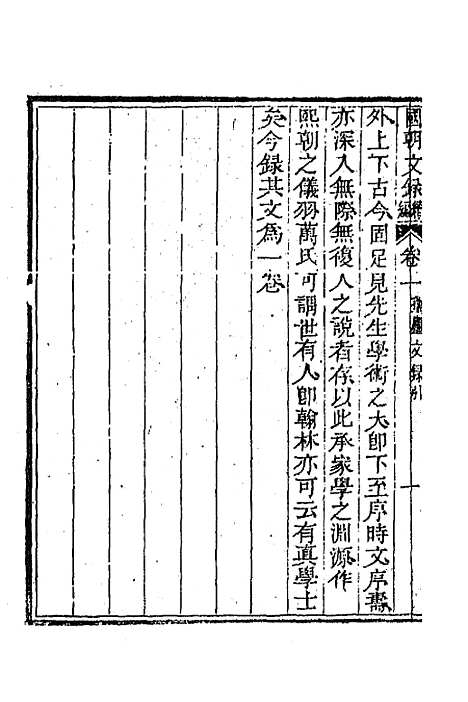 國朝文録續編 卷一 孺廬文録引 一
外上下古今固足見先生學術之大即下至序時文序壽
亦深入無際無復人之說者存以此承家學之淵源作
熙朝之儀羽萬氏可謂世有人即翰林亦可云有真學士
矣今録其文為一卷